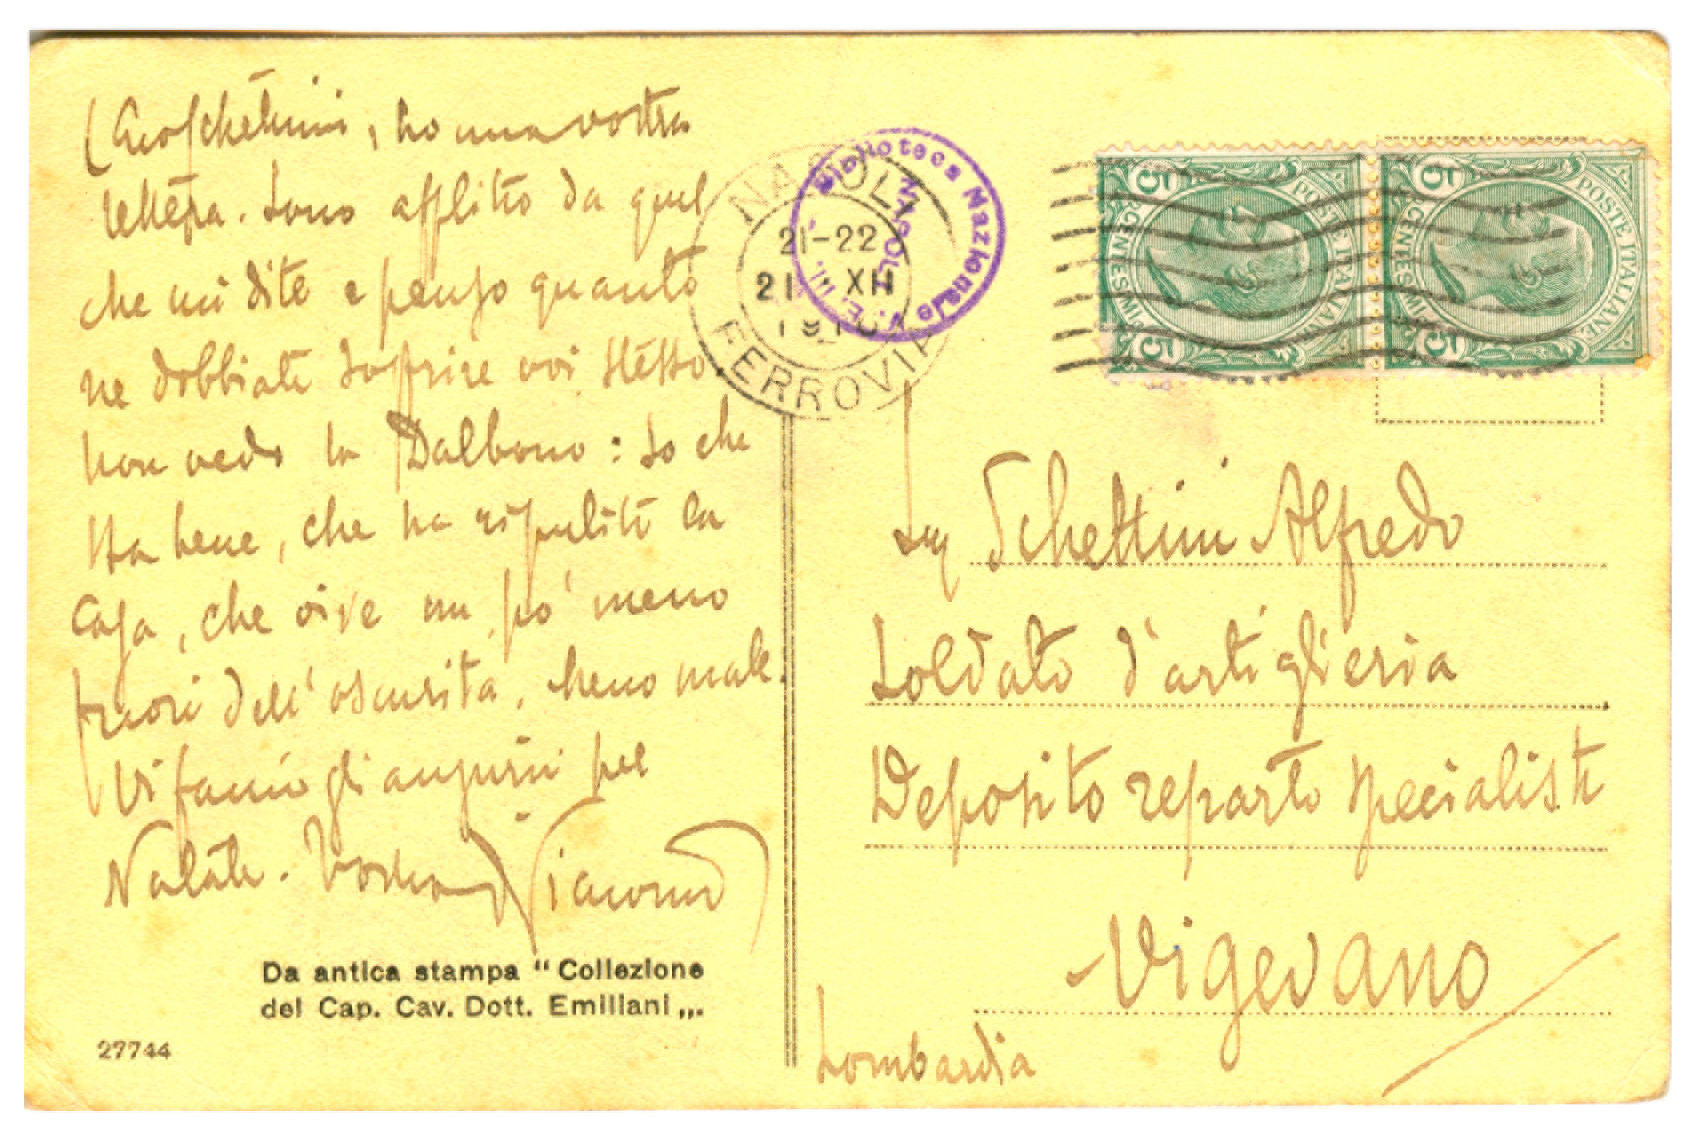 Caro Schettini, ho una vostra
lettera. Sono afflitto da quel
che mi dite e penso quanto
ne dobbiate soffrire voi stesso.
Non vedo la Dalbono: so che
sta bene, che ha ripulito la
casa, che vive un po' meno
fuori dell'oscurità, meno male.
Vi faccio gli auguri pel
Natale. Vostro
Giacomo
Da antica stampa “Collezione
del Cap. Cav. Dott. Emiliani „.
27744
NAPOLI
21-22
21 XII
FERROVIA
Biblioteca Nazionale
V. E. III.
NAPOLI
POSTE ITALIANE
5 CENTESIMI 5
POSTE ITALIANE
5 CENTESIMI 5
Sig Schettini Alfredo
Soldato d'artiglieria
Deposito reparto specialisti
Vigevano
Lombardia